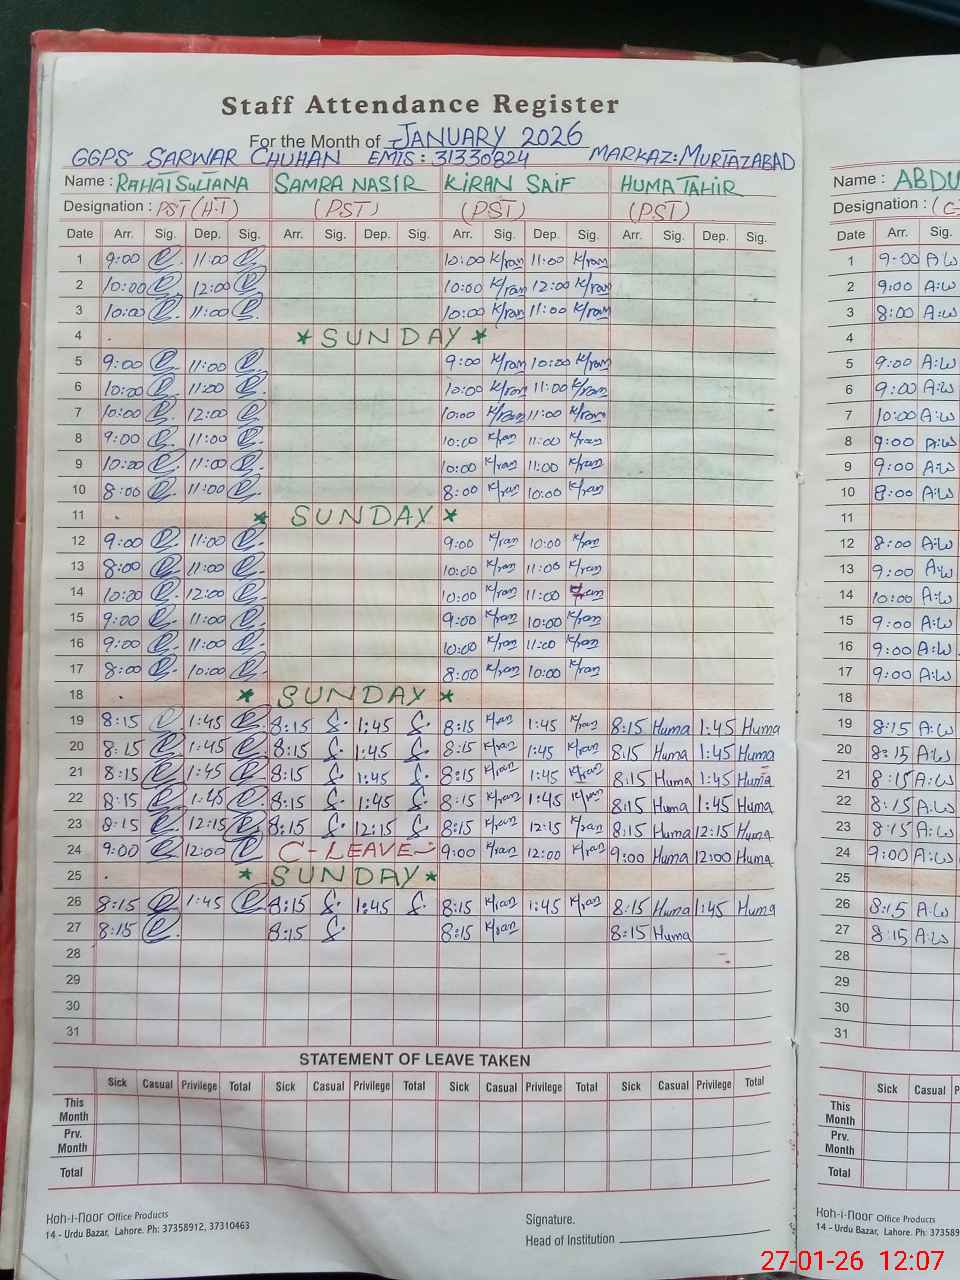 Staff Attendance Register
For the Month of JANUARY 2026
GGPS SARWAR CHUHAN EMIS: 31330824 MARKAZ: MURTAZABAD
Name : RAHAT SULTANA SAMRA NASIR KIRAN SAIF HUMA TAHIR
Designation : PST (H.T) (PST) (PST) (PST)
Date Arr. Sig. Dep. Sig. Arr. Sig. Dep. Sig. Arr. Sig. Dep. Sig. Arr. Sig. Dep. Sig.
1 9:00 11:00 10:00 Kiran 11:00 Kiran
2 10:00 12:00 10:00 Kiran 12:00 Kiran
3 10:00 11:00 10:00 Kiran 11:00 Kiran
4 * SUNDAY *
5 9:00 11:00 9:00 Kiran 10:00 Kiran
6 10:00 11:00 10:00 Kiran 11:00 Kiran
7 10:00 12:00 10:00 Kiran 11:00 Kiran
8 9:00 11:00 10:00 Kiran 11:00 Kiran
9 10:00 11:00 10:00 Kiran 11:00 Kiran
10 8:00 11:00 8:00 Kiran 10:00 Kiran
11 * SUNDAY *
12 9:00 11:00 9:00 Kiran 10:00 Kiran
13 8:00 11:00 10:00 Kiran 11:00 Kiran
14 10:00 12:00 10:00 Kiran 11:00
15 9:00 11:00 9:00 Kiran 10:00 Kiran
16 9:00 11:00 10:00 Kiran 11:00 Kiran
17 8:00 10:00 8:00 Kiran 10:00 Kiran
18 * SUNDAY *
19 8:15 1:45 8:15 S. 1:45 S. 8:15 Kiran 1:45 Kiran 8:15 Huma 1:45 Huma
20 8:15 1:45 8:15 S. 1:45 S. 8:15 Kiran 1:45 Kiran 8:15 Huma 1:45 Huma
21 8:15 1:45 8:15 S. 1:45 S. 8:15 Kiran 1:45 Kiran 8:15 Huma 1:45 Huma
22 8:15 1:45 8:15 S. 1:45 S. 8:15 Kiran 1:45 Kiran 8:15 Huma 1:45 Huma
23 8:15 12:15 8:15 S. 12:15 S. 8:15 Kiran 12:15 Kiran 8:15 Huma 12:15 Huma
24 9:00 12:00 C-LEAVE 9:00 Kiran 12:00 Kiran 9:00 Huma 12:00 Huma
25 * SUNDAY *
26 8:15 1:45 8:15 S. 1:45 S. 8:15 Kiran 1:45 Kiran 8:15 Huma 1:45 Huma
27 8:15 8:15 S. 8:15 Kiran 8:15 Huma
28
29
30
31
STATEMENT OF LEAVE TAKEN
Sick Casual Privilege Total Sick Casual Privilege Total Sick Casual Privilege Total Sick Casual Privilege Total
This Month
Prv. Month
Total
Koh-i-noor Office Products
14 - Urdu Bazar, Lahore. Ph: 37358912, 37310463
Signature.
Head of Institution
Name : ABDU
Designation : (C
Date Arr. Sig.
1 9:00 A:W
2 9:00 A:W
3 8:00 A:W
4
5 9:00 A:W
6 9:00 A:W
7 10:00 A:W
8 9:00 A:W
9 9:00 A:W
10 8:00 A:W
11
12 8:00 A:W
13 9:00 A:W
14 10:00 A:W
15 9:00 A:W
16 9:00 A:W
17 9:00 A:W
18
19 8:15 A:W
20 8:15 A:W
21 8:15 A:W
22 8:15 A:W
23 8:15 A:W
24 9:00 A:W
25
26 8:15 A:W
27 8:15 A:W
28
29
30
31
Sick Casual P
This Month
Prv. Month
Total
Koh-i-noor Office Products
14 - Urdu Bazar, Lahore. Ph: 37358
27-01-26 12:07